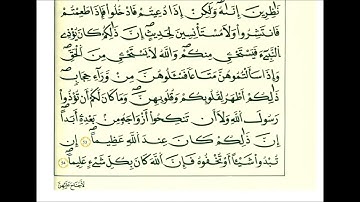 نَٰظِرِينَ إِنَىٰهُ وَلَٰكِنْ إِذَا دُعِيتُمْ فَٱدْخُلُوا۟ فَإِذَا طَعِمْتُمْ
فَٱنتَشِرُوا۟ وَلَا مُسْتَـْٔنِسِينَ لِحَدِيثٍ إِنَّ ذَٰلِكُمْ كَانَ يُؤْذِى
ٱلنَّبِىَّ فَيَسْتَحْىِۦ مِنكُمْ وَٱللَّهُ لَا يَسْتَحْىِۦ مِنَ ٱلْحَقِّ
وَإِذَا سَأَلْتُمُوهُنَّ مَتَٰعًا فَسْـَٔلُوهُنَّ مِن وَرَآءِ حِجَابٍ
ذَٰلِكُمْ أَطْهَرُ لِقُلُوبِكُمْ وَقُلُوبِهِنَّ وَمَا كَانَ لَكُمْ أَن تُؤْذُوا۟
رَسُولَ ٱللَّهِ وَلَآ أَن تَنكِحُوٓا۟ أَزْوَٰجَهُۥ مِنۢ بَعْدِهِۦٓ أَبَدًا
إِنَّ ذَٰلِكُمْ كَانَ عِندَ ٱللَّهِ عَظِيمًا ٥٣ إِن
تُبْدُوا۟ شَيْـًٔا أَوْ تُخْفُوهُ فَإِنَّ ٱللَّهَ كَانَ بِكُلِّ شَىْءٍ عَلِيمًا ٥٤
لَّا جُنَاحَ عَلَيْهِنَّ